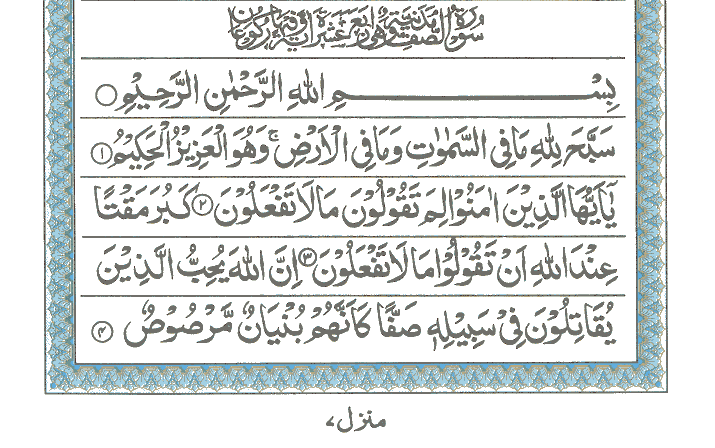 سُوْرَةُ الصَّفِّ مَدَنِيَّةٌ وَّهِيَ اَرْبَعَ عَشْرَةَ اٰيَةً وَّفِيْهَا رُكُوْعَانِ
بِسْمِ اللّٰهِ الرَّحْمٰنِ الرَّحِيْمِ ○
سَبَّحَ لِلّٰهِ مَا فِي السَّمٰوٰتِ وَمَا فِي الْاَرْضِ ۚ وَهُوَ الْعَزِيْزُ الْحَكِيْمُ ۱
يٰۤاَيُّهَا الَّذِيْنَ اٰمَنُوْا لِمَ تَقُوْلُوْنَ مَا لَا تَفْعَلُوْنَ ۲ كَبُرَ مَقْتًا
عِنْدَ اللّٰهِ اَنْ تَقُوْلُوْا مَا لَا تَفْعَلُوْنَ ۳ اِنَّ اللّٰهَ يُحِبُّ الَّذِيْنَ
يُقَاتِلُوْنَ فِيْ سَبِيْلِهٖ صَفًّا كَاَنَّهُمْ بُنْيَانٌ مَّرْصُوْصٌ ۴
منزل ۷